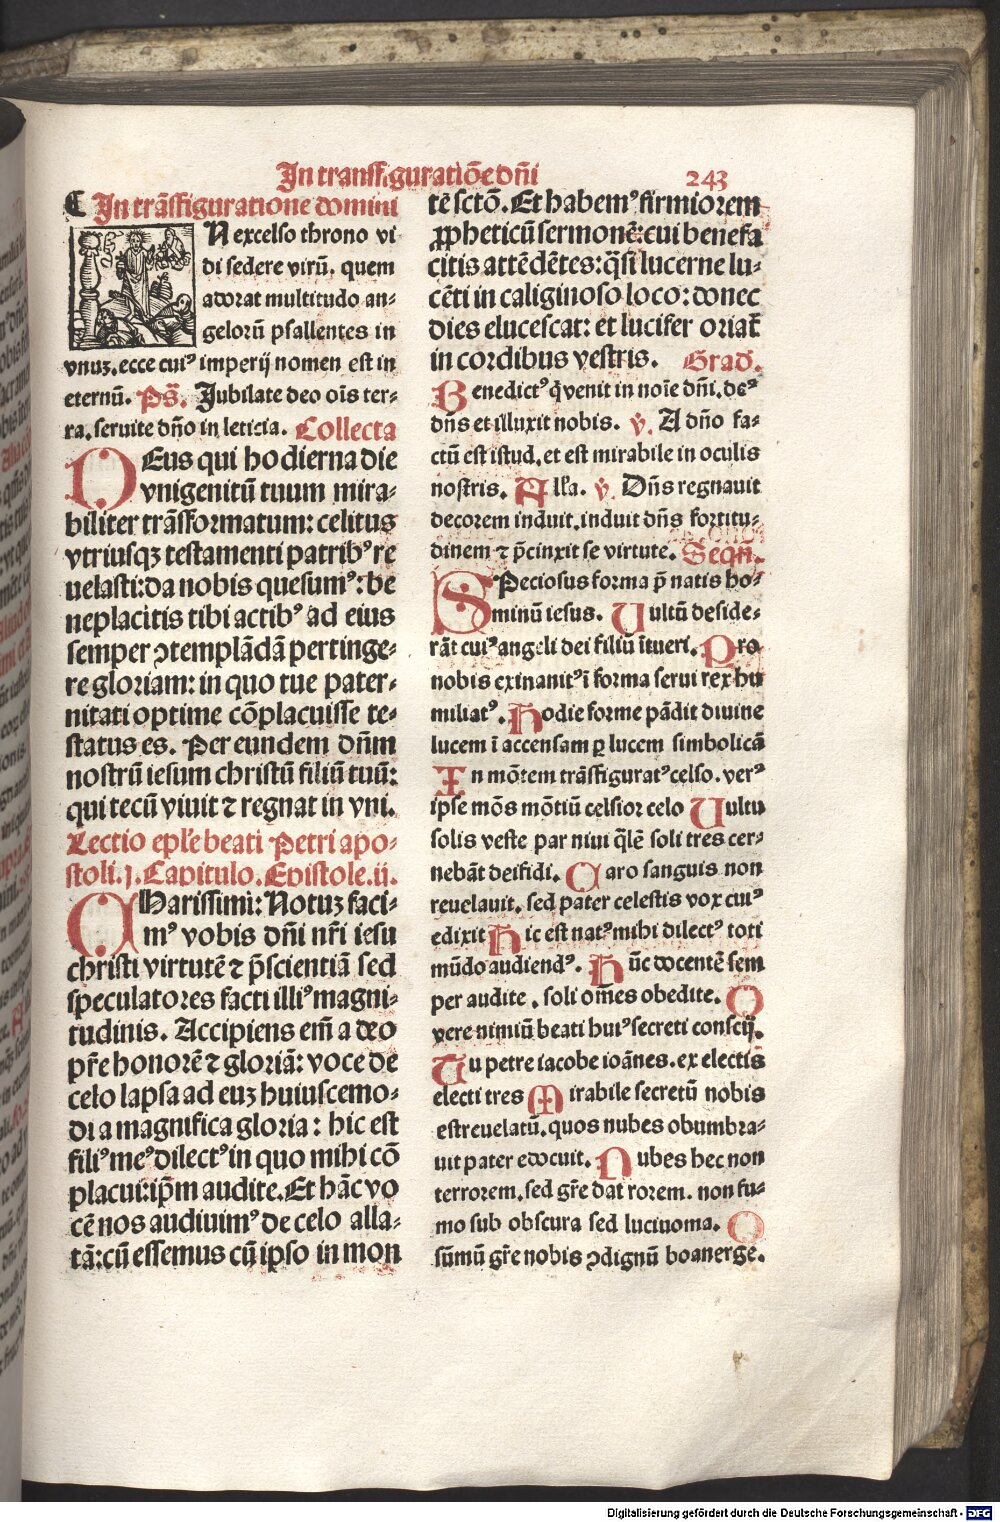 In transfiguratiōe dn̄i 243
In trāsfiguratione domini
IN excelso throno vi
di sedere virū. quem
adorat multitudo an-
gelorū psallentes in
vnuꝫ. ecce cuiꝰ imperij nomen est in
eternū. Ps̄. Jubilate deo oīs ter-
ra. seruite dn̄o in leticia. Collecta
DEus qui hodierna die
vnigenitū tuum mira-
biliter trāsformatum: celitus
vtriusqꝫ testamenti patribꝰ re
uelasti: da nobis quesumꝰ: be
neplacitis tibi actibꝰ ad eius
semper ꝯtemplādā pertinge-
re gloriam: in quo tue pater-
nitati optime cōplacuisse te-
status es. Per eundem dn̄m
nostrū iesum christū filiū tuū:
qui tecū viuit ⁊ regnat in vni.
Lectio ep̄le beati Petri apo-
stoli. j. Capitulo. Epistole. ii.
CHarissimi: Notuꝫ faci-
mꝰ vobis dn̄i nr̄i iesu
christi virtutē ⁊ p̄scientiā sed
speculatores facti illiꝰ magni-
tudinis. Accipiens em̄ a deo
pr̄e honorē ⁊ gloriā: voce de
celo lapsa ad euꝫ huiuscemo-
di a magnifica gloria: hic est
filiꝰ meꝰ dilectꝰ in quo mihi cō
placui: ip̄m audite. Et hāc vo
cē nos audiuimꝰ de celo alla-
tā: cū essemus cū ipso in mon
te sctō. Et habemꝰ firmiorem
ꝓpheticū sermonē: cui benefa
citis attēdētes: q̄si lucerne lu-
cēti in caliginoso loco: donec
dies elucescat: et lucifer oriat̄
in cordibus vestris. Grad.
Benedictꝰ q̇ venit in noīe dn̄i. deꝰ
dn̄s et illuxit nobis. ℣. A dn̄o fa-
ctū est istud. et est mirabile in oculis
nostris. All̄a. ℣. Dn̄s regnauit
decorem induit. induit dn̄s fortitu-
dinem ⁊ p̄cinxit se virtute. Seqn̄.
SPeciosus forma p̄ natis ho-
minū iesus. Uultū deside-
rāt cuiꝰ angeli dei filiū ītueri. Pro
nobis exinanitꝰ ī forma serui rex hu
miliatꝰ. Hodie forme pādit diuine
lucem ī accensam ꝑ lucem simbolicā
In mōtem trāsfiguratꝰ celso. verꝰ
ipse mōs mōtiū celsior celo Uultu
solis veste par niui q̄lē soli tres cer-
nebāt deifidi. Caro sanguis non
reuelauit. sed pater celestis vox cuiꝰ
edixit Hic est natꝰ mihi dilectꝰ toti
mūdo audiendꝰ. Hūc docentē sem
per audite. soli om̄es obedite. O
vere nimiū beati huiꝰ secreti conscij.
Tu petre iacobe ioānes. ex electis
electi tres Mirabile secretū nobis
est reuelatū. quos nubes obumbra-
uit pater edocuit. Nubes hec non
terrorem. sed gr̄e dat rorem. non fu-
mo sub obscura sed luciuoma. O
sūmū gr̄e nobis ꝯdignū boanerge.
Digitalisierung gefördert durch die Deutsche Forschungsgemeinschaft - DFG